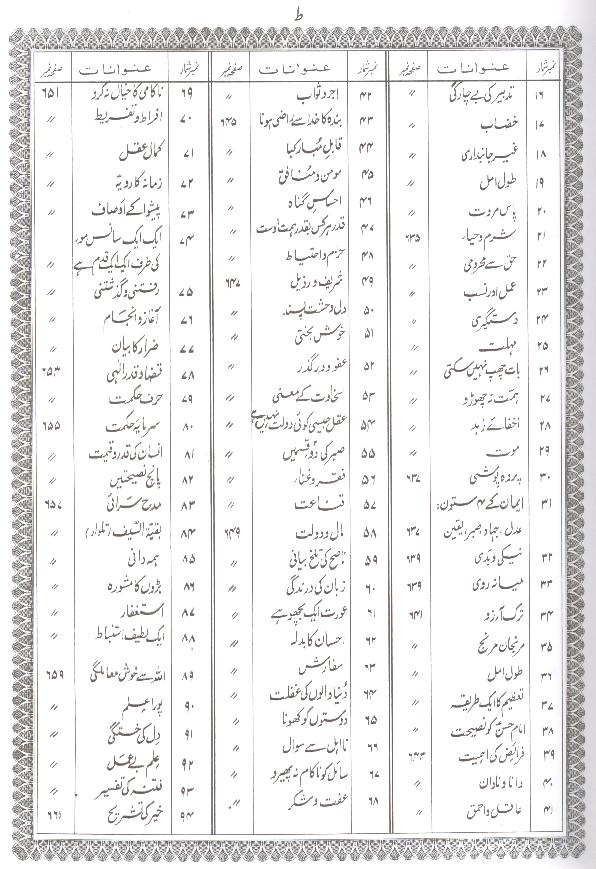 ط
نمبر شمار عنوانات صفحہ نمبر
۱۶ تدبیر کی بے چارگی ″
۱۷ خضاب ″
۱۸ غیر جانبداری ″
۱۹ طول امل ″
۲۰ پاس مروت ″
۲۱ شرم و حیاء ۶۳۵
۲۲ حق سے محرومی ″
۲۳ عمل اور نسب ″
۲۴ دستگیری ″
۲۵ مہلت ″
۲۶ بات چھپ نہیں سکتی ″
۲۷ ہمت نہ چھوڑو ″
۲۸ اخفائے زہد ″
۲۹ موت ″
۳۰ پردہ پوشی ۶۳۷
۳۱ ایمان کے ۴ ستون:
عدل، جہاد، صبر، یقین ۶۳۷
۳۲ نیکی و بدی ۶۳۹
۳۳ میانہ روی ۶۳۹
۳۴ ترک آرزو ۶۴۱
۳۵ مرنجان مرنج ″
۳۶ طول امل ″
۳۷ تعظیم کا ایک طریقہ ″
۳۸ امام حسنؑ کو نصیحت ″
۳۹ فرائض کی اہمیت ۶۴۳
۴۰ دانا و نادان ″
۴۱ عاقل و احمق ″
نمبر شمار عنوانات صفحہ نمبر
۴۲ اجر و ثواب ″
۴۳ بندہ کا خدا سے راضی ہونا ۶۴۵
۴۴ قابلِ مبارکباد ″
۴۵ مومن و منافق ″
۴۶ احساسِ گناہ ″
۴۷ قدر ہر کس بقدر ہمت اوست ″
۴۸ حزم و احتیاط ″
۴۹ شریف و رذیل ۶۴۷
۵۰ دل وحشت پسند ″
۵۱ خوش بختی ″
۵۲ عفو و درگذر ″
۵۳ سخاوت کے معنی ″
۵۴ عقل جیسی کوئی دولت نہیں ہے ″
۵۵ صبر کی دو قسمیں ″
۵۶ فقر و غنا ″
۵۷ قناعت ″
۵۸ مال و دولت ۶۴۹
۵۹ ناصح کی تلخ بیانی ″
۶۰ زبان کی درندگی ″
۶۱ عورت ایک بچھو ہے ″
۶۲ احسان کا بدلہ ″
۶۳ سفارش ″
۶۴ دنیا والوں کی غفلت ″
۶۵ دوستوں کو کھونا ″
۶۶ نااہل سے سوال ″
۶۷ سائل کو ناکام نہ پھیرو ″
۶۸ عفت و شکر ″
نمبر شمار عنوانات صفحہ نمبر
۶۹ ناکامی کا خیال نہ کرو ۶۵۱
۷۰ افراط و تفریط ″
۷۱ کمال عقل ″
۷۲ زمانہ کا رویہ ″
۷۳ پیشوا کے اوصاف ″
۷۴ ایک ایک سانس موت
کی طرف ایک ایک قدم ہے ″
۷۵ رفتنی و گذشتنی ″
۷۶ آغاز و انجام ″
۷۷ ضرار کا بیان ″
۷۸ قضا و قدر الٰہی ۶۵۳
۷۹ حرف حکمت ″
۸۰ سرمایہ حکمت ۶۵۵
۸۱ انسان کی قدر و قیمت ″
۸۲ پانچ نصیحتیں ″
۸۳ مدح سرائی ۶۵۷
۸۴ بقیۃ السیف (تلوار) ″
۸۵ ہمہ دانی ″
۸۶ بڑوں کا مشورہ ″
۸۷ استغفار ″
۸۸ ایک لطیف استنباط ″
۸۹ اللہ سے خوش معاملگی ۶۵۹
۹۰ پورا عِلم ″
۹۱ دِل کی خستگی ″
۹۲ عِلم بے عمل ″
۹۳ فتنہ کی تفسیر ″
۹۴ خیر کی تشریح ۶۶۱